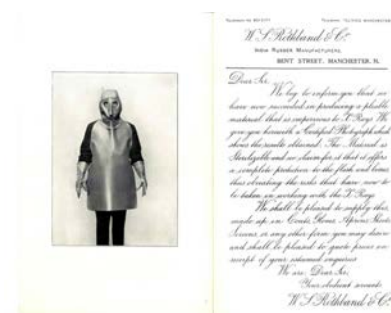 W. S. Rothband & Co.
India Rubber Manufacturers
BENT STREET, MANCHESTER, N.
Dear Sir,
We beg to inform you that we
have now succeeded in producing a pliable
material that is impervious to X Rays. We
give you herewith a Certified Photograph which
shows the results obtained. The Material is
Sterilizable and we claim for it that it offers
a complete protection to the flesh and bones,
thus obviating the risks that have now to
be taken in working with the X Rays.
We shall be pleased to supply this
made up in Coats, Gloves, Aprons,
Screens, or any other form you may desire
and shall be pleased to quote prices on
receipt of your esteemed enquiries
We are, Dear Sir,
Your obedient servants
W. S. Rothband & Co.